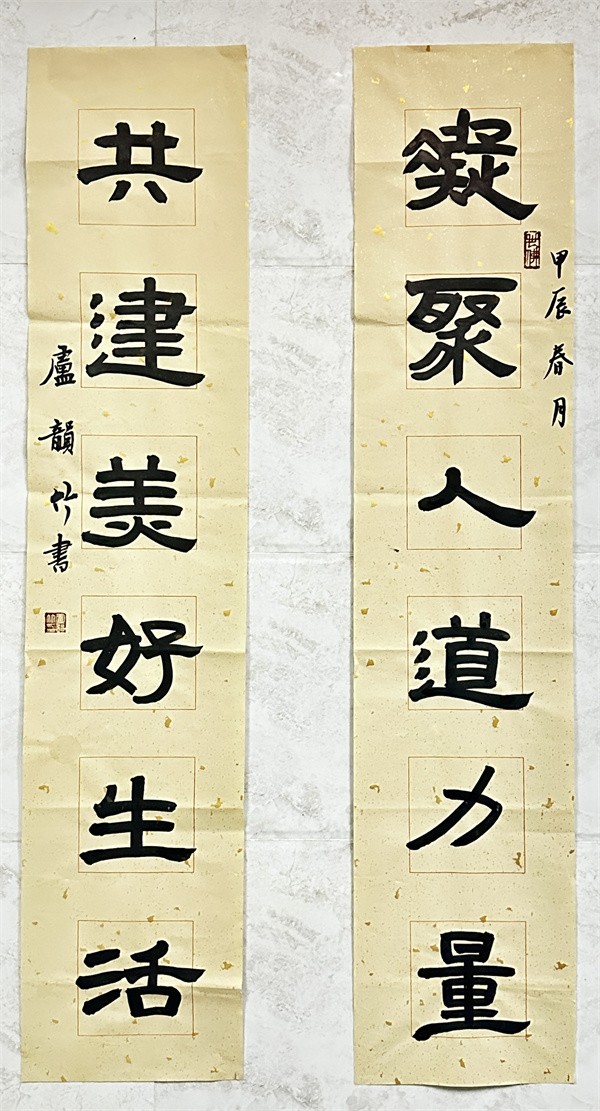 甲辰春月
凝聚人道力量
共建美好生活
盧韻竹書